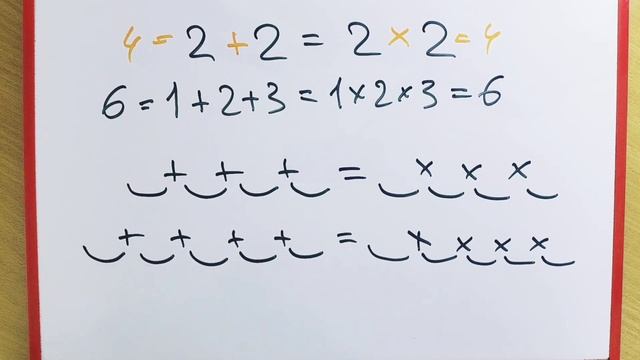 4 = 2 + 2 = 2 × 2 = 4
6 = 1 + 2 + 3 = 1 × 2 × 3 = 6
_ + _ + _ + _ = _ × _ × _ × _
_ + _ + _ + _ + _ = _ × _ × _ × _ × _